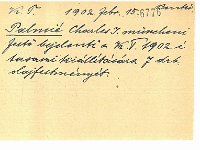 K. T. 1902 febr. 15. 6776
Palmié Charles J. müncheni
festő bejelenti a K. T. 1902. i
tavaszi kiállítására 7 drb.
olajfestményét.